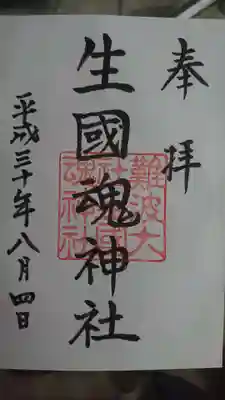 奉拝
生國魂神社
平成三十年八月四日
難波大社生國魂神社